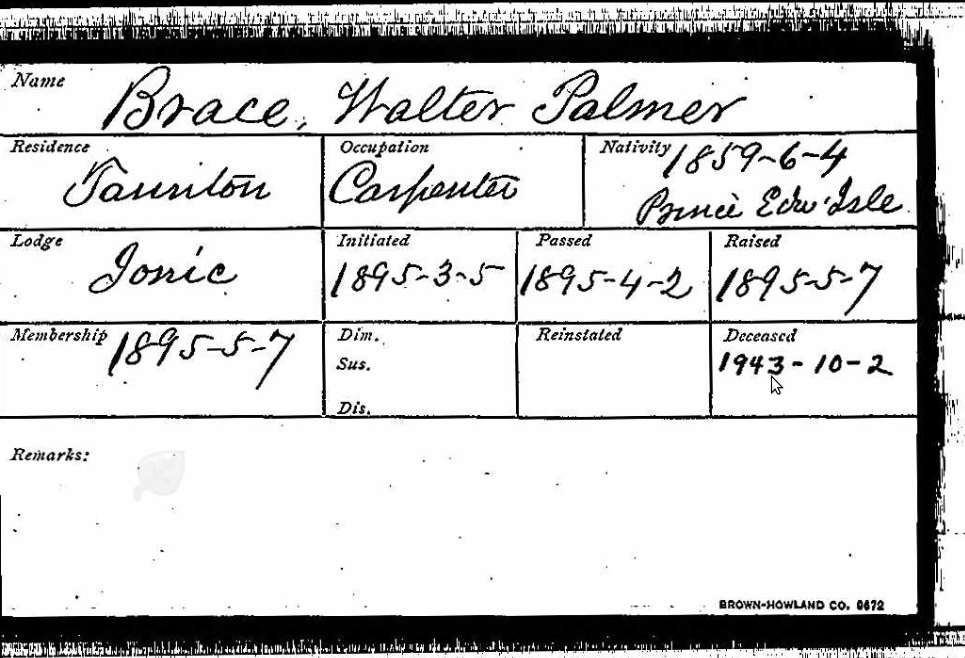 Name
Brace, Walter Palmer
Residence Occupation Nativity 1859-6-4
Taunton Carpenter Prince Edw Isle
Lodge Initiated Passed Raised
Ionic 1895-3-5 1895-4-2 1895-5-7
Membership 1895-5-7 Dim. Reinstated Deceased
Sus. 1943-10-2
Dis.
Remarks:
BROWN-HOWLAND CO. 6672